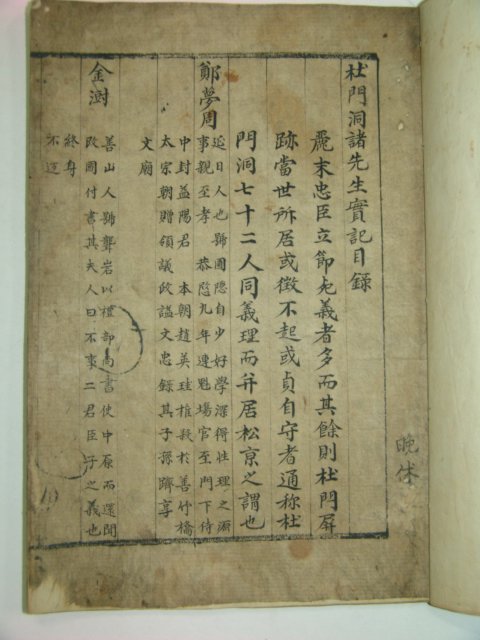 杜門洞諸先生實記目錄
麗末忠臣立節死義者多而其餘則杜門屏
跡當世所居或徵不起或貞自守者通称杜
門洞七十二人同義理而并居松京之謂也
鄭夢周
延日人也號圃隐自少好學深得性理之源
事親至孝 恭愍九年連魁塲官至門下侍
中封益陽君 本朝趙英珪椎殺於善竹橋
太宗朝贈領議政謚文忠錄其子孫躋享
文廟
金澍
善山人號聾岩以禮部尚書使中原而還聞
改國付書其夫人曰不事二君臣子之義也
終身
不返
晩休